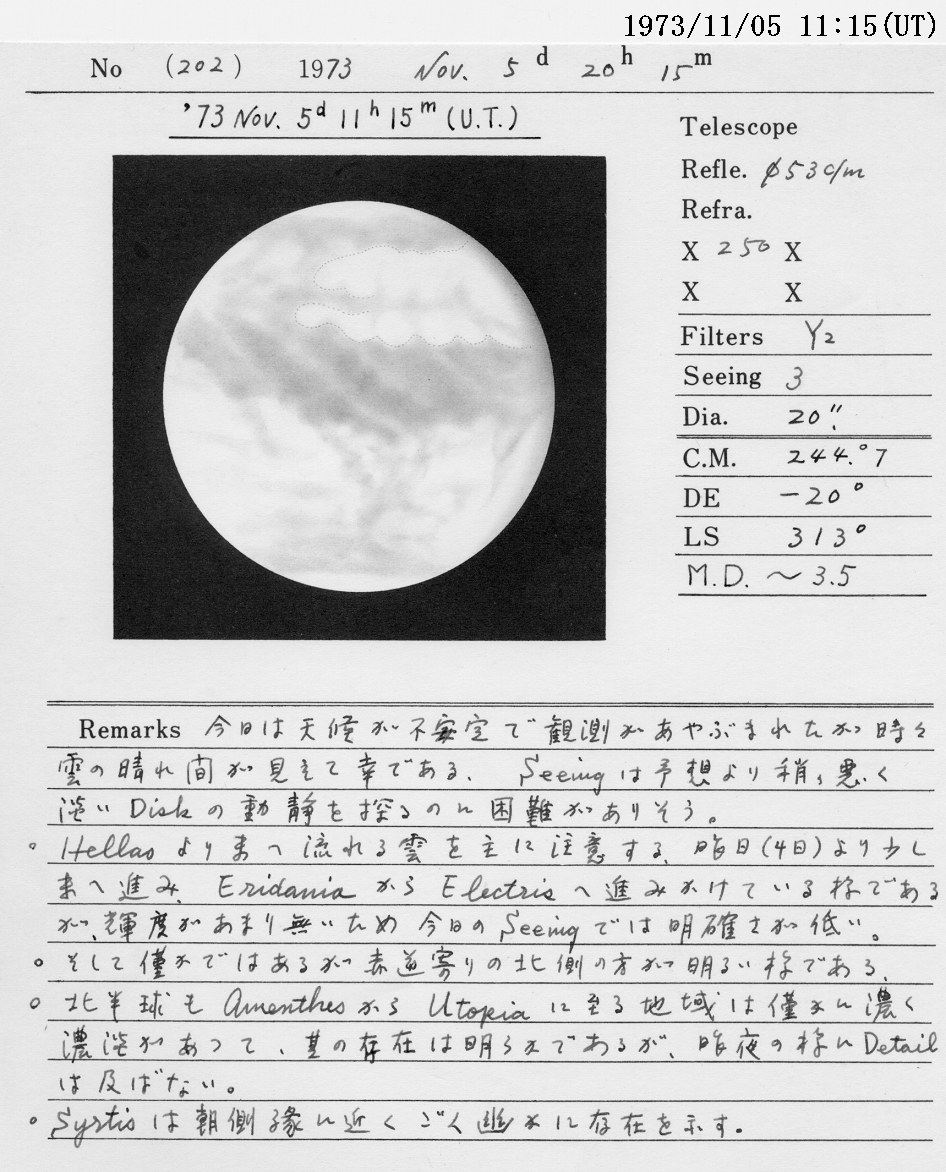 1973/11/05 11:15(UT)
No (202) 1973 Nov. 5 d 20 h 15 m
'73 Nov. 5d 11h 15m (U.T.)
Telescope
Refle. φ53c/m
Refra.
X 250 X
X X
Filters Y2
Seeing 3
Dia. 20".
C.M. 244.°7
DE -20°
LS 313°
M.D. ~3.5
Remarks 今日は天候が不安定で観測があやぶまれたが時々
雲の晴れ間が見えて幸である、Seeingは予想より稍々悪く
淡いDiskの動静を探るのに困難がありそう。
○ Hellasより東へ流れる雲を主に注意する、昨日(4日)より少し
東へ進み、EridaniaからElectrisへ進みかけている様である
が、輝度があまり無いため今日のSeeingでは明確さが低い。
○ そして僅かではあるが赤道寄りの北側の方が明るい様である、
○ 北半球もAmenthesからUtopiaに至る地域は僅かに濃く
濃淡があって、其の存在は明らかであるが、昨夜の様にDetail
は及ばない。
○ Syrtisは朝側縁に近くごく かに存在を示す。